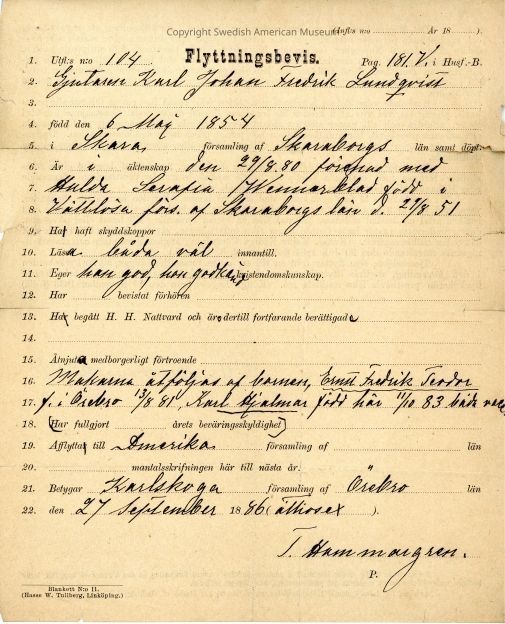 Copyright Swedish American Museum
(Infl:s n:o År 18 ).
1. Utfl:s n:o 104 Flyttningsbevis. Pag. 181 V. i Husf.-B.
2. Gjutaren Karl Johan Fredrik Lundqvist
3.
4. född den 6 Maj 1854
5. i Skara församling af Skaraborgs län samt döpt.
6. Är i äktenskap den 29/8.80 förenad med
7. Hulda Serafia Wennerblad född i
8. Vättlösa förs. af Skaraborgs län d. 27/8 51
9. Har haft skyddskoppor
10. Läsa båda väl innantill.
11. Eger han god, hon godkänd kristendomskunskap.
12. Har bevistat förhören
13. Har begått H. H. Nattvard och äro dertill fortfarande berättigade
14.
15. Åtnjuta medborgerligt förtroende
16. Makarna åtföljas af barnen, Ernst Fredrik Teodor
17. f. i Örebro 13/8 81, Karl Hjalmar född här 11/10 83 båda
18. (Har fullgjort årets beväringsskyldighet)
19. Afflyttat till Amerika församling af län
20. mantalsskrifningen här till nästa år.
21. Betygar Karlskoga församling af Örebro län
22. den 27 September 1886 (åttiosex ).
T. Hammargren.
P.
Blankett N:o 11.
(Hasse W. Tullberg, Linköping.)